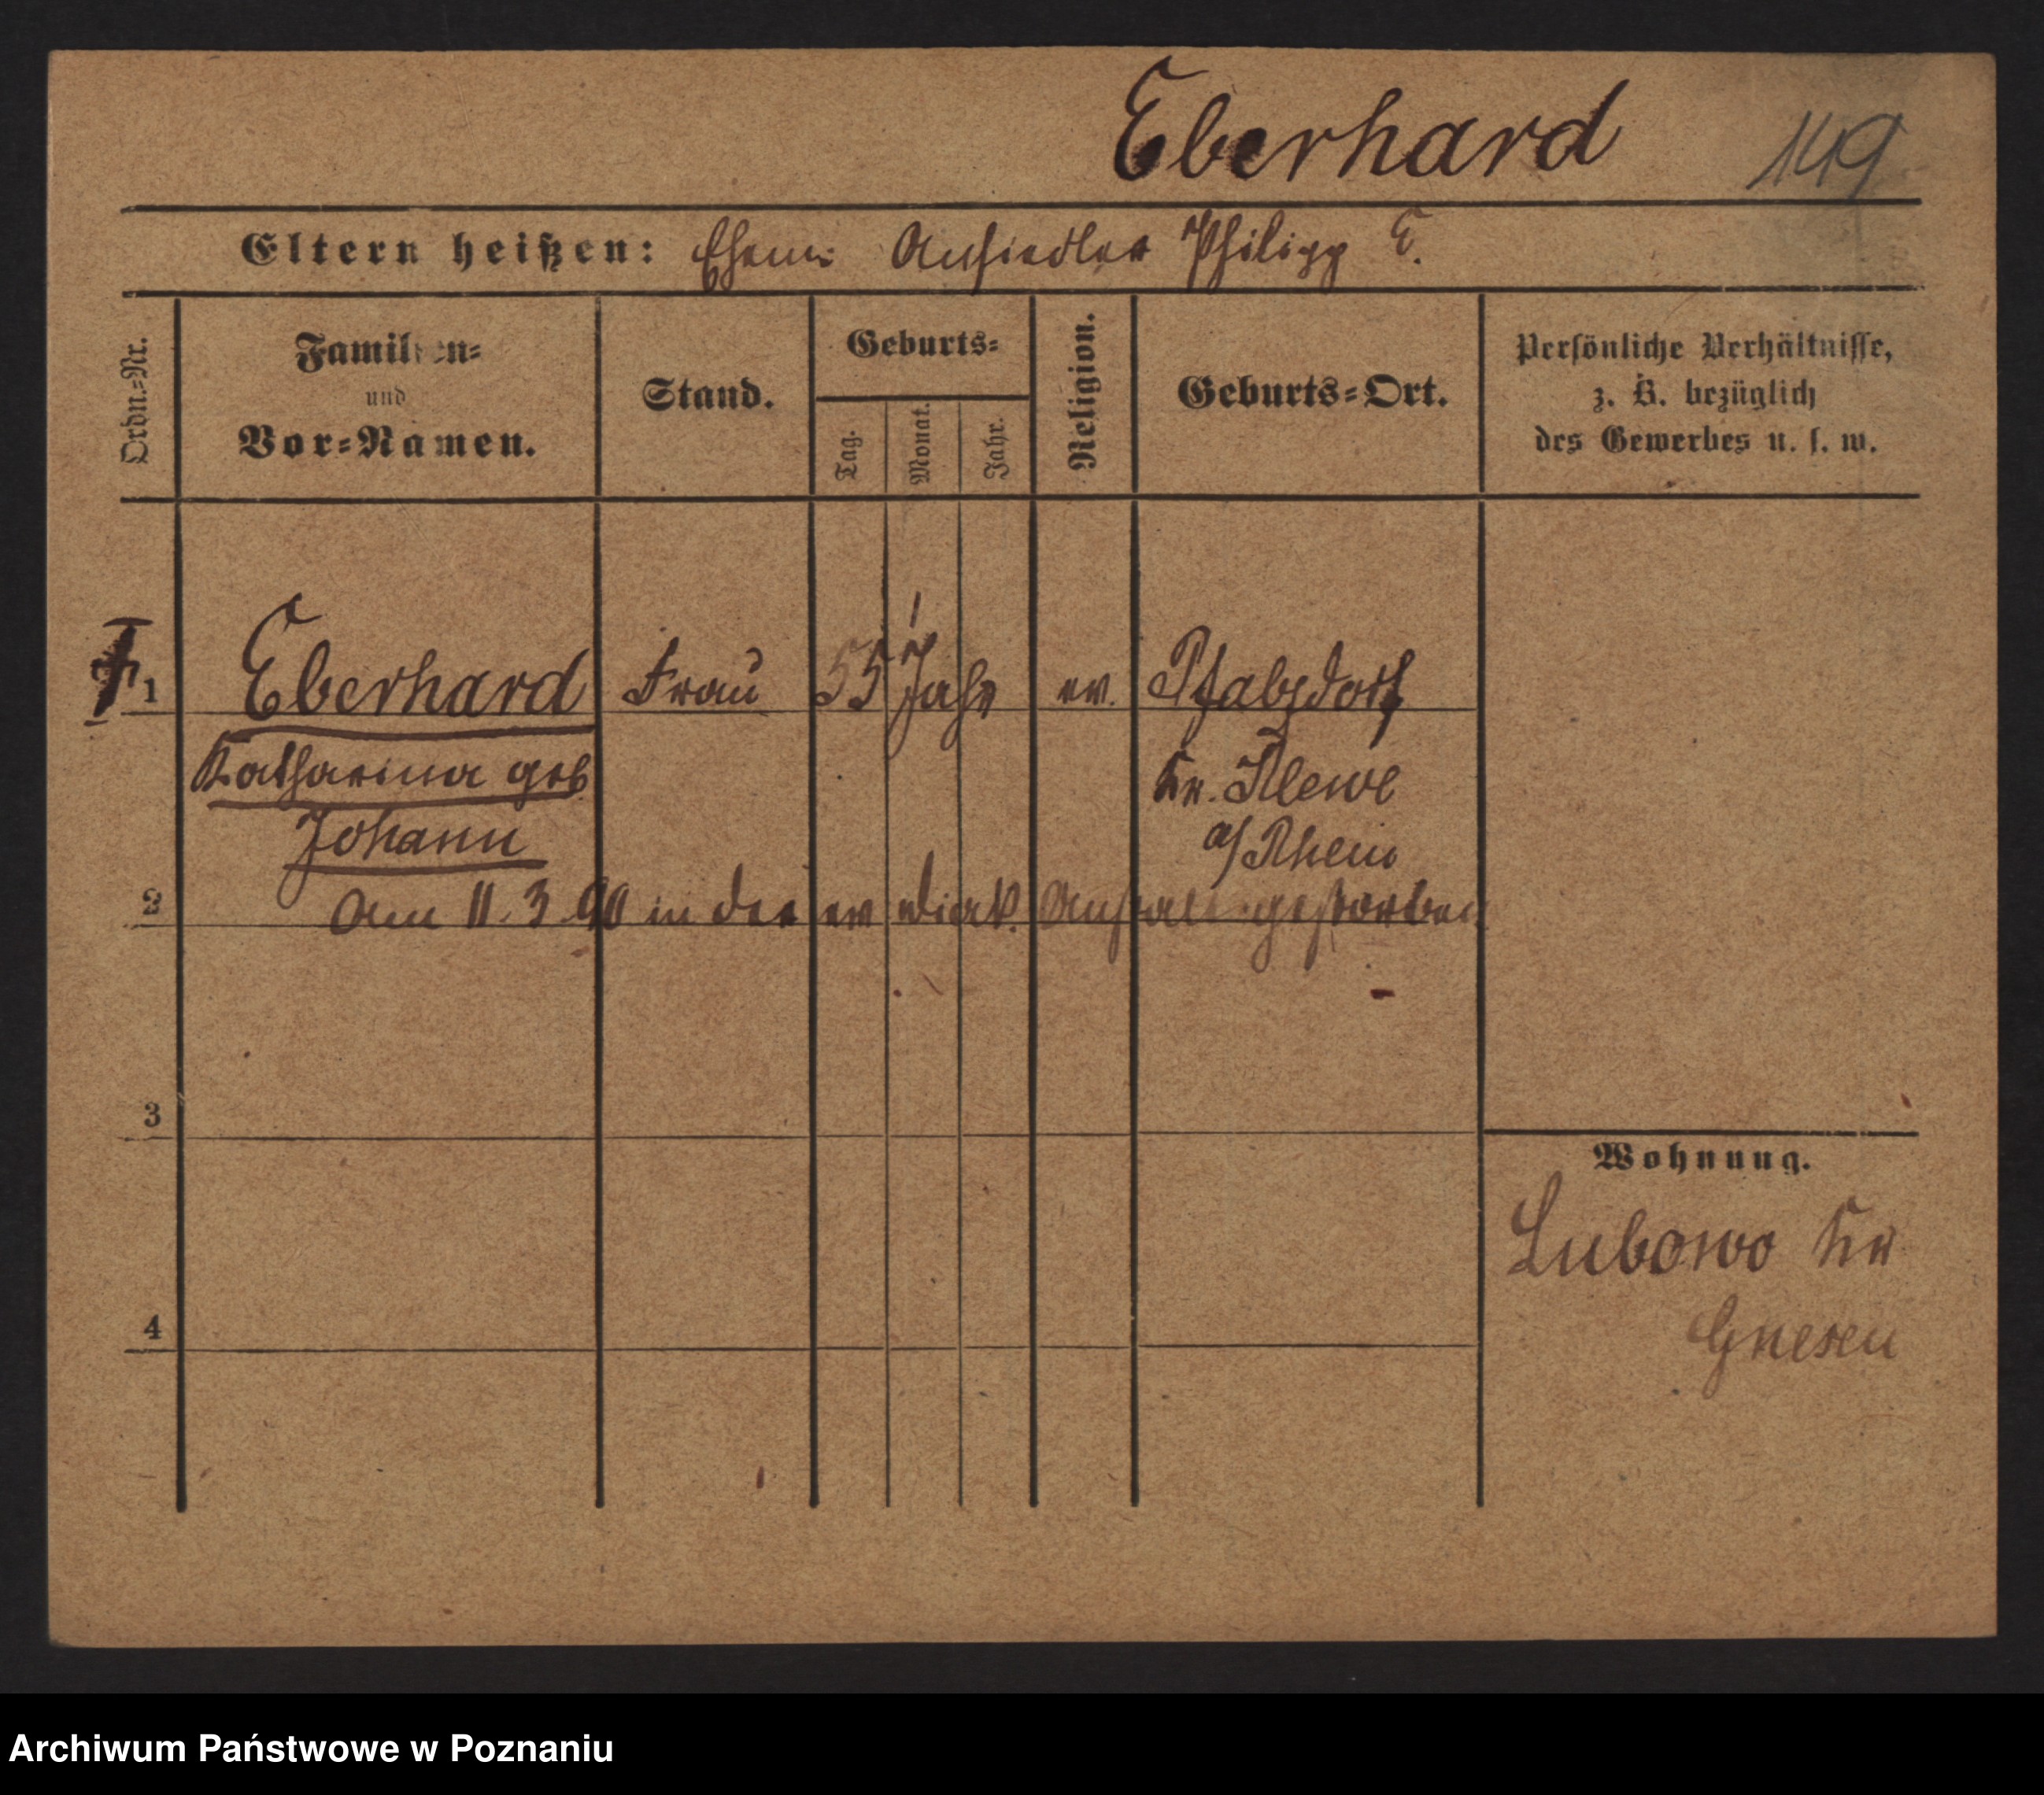 Eberhard 149
Eltern heißen: Ehem. Ansiedler Philipp E.
Ordn.-Nr.
Familien-
und
Vor-Namen.
Stand.
Geburts-
Tag.
Monat.
Jahr.
Religion.
Geburts-Ort.
Persönliche Verhältnisse,
z. B. bezüglich
des Gewerbes u. s. w.
1 Eberhard Frau 55 Jahr ev. Pfalzdorf
Katharina geb Kr. Klewe
Johann a/Rhein
2 Am 11.3.90 in der ev diak. Anstalt gestorben
3
Wohnung.
Lubowo Kr
4 Gnesen
Archiwum Państwowe w Poznaniu